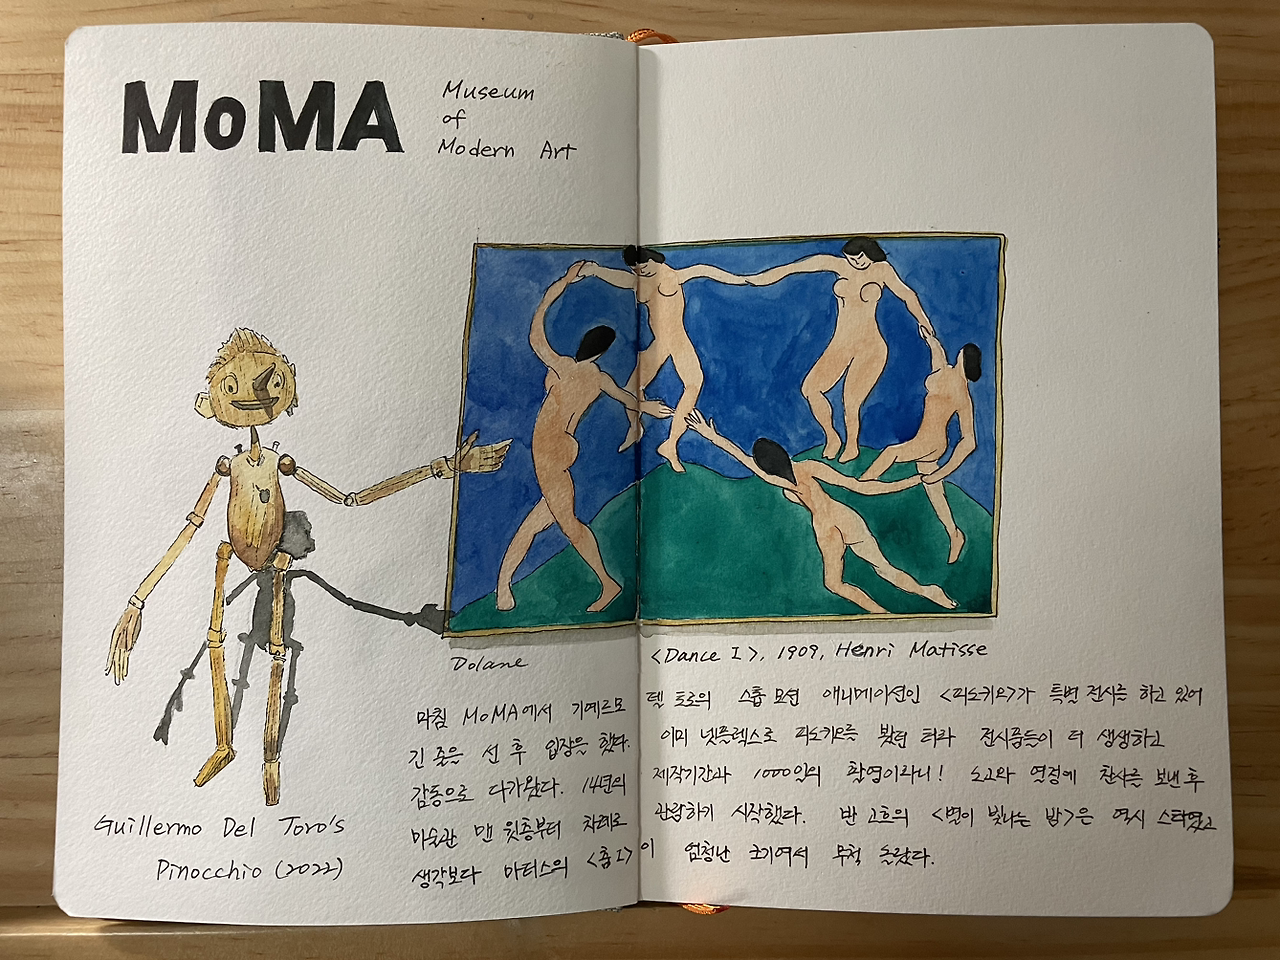 MoMA
Museum
of
Modern Art
Guillermo Del Toro's
Pinocchio (2022)
Dolane
<Dance I>, 1909, Henri Matisse
마침 MoMA에서 기예르모 델 토로의 스톱 모션 애니메이션인 <피노키오>가 특별 전시를 하고 있어
긴 줄을 선 후 입장을 했다. 이미 넷플렉스로 피노키오를 봤던 터라 전시품들이 더 생생하고
감동으로 다가왔다. 14년의 제작기간과 1000일의 촬영이라니! 노고와 열정에 찬사를 보낸 후
미술관 맨 윗층부터 차례로 관람하기 시작했다. 반 고흐의 <별이 빛나는 밤>은 역시 스타였고
생각보다 마티스의 <춤 I>이 엄청난 크기여서 무척 놀랐다.